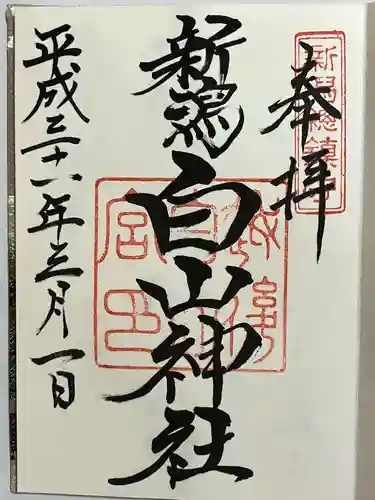 奉拝
新潟總鎮守
新潟白山神社
平成三十一年三月一日